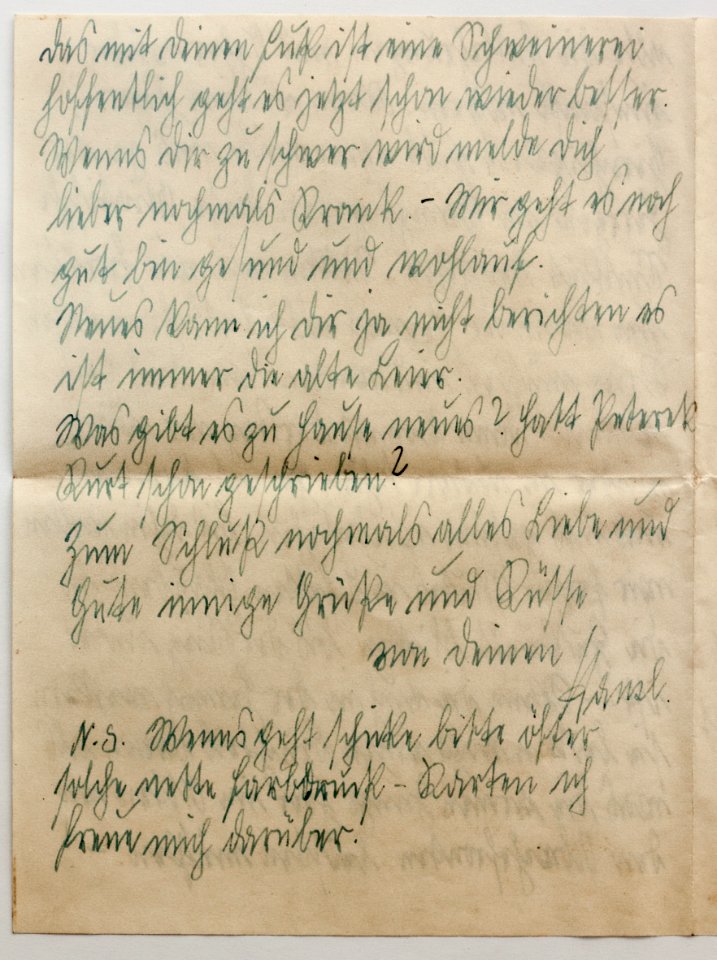 das mit deinen Fuß ist eine Schweinerei
hoffentlich geht es jetzt schon wieder besser.
Wenns dir zu schwer wird melde dich
lieber nochmals Krank. - Mir geht es noch
gut bin gesund und wohlauf.
Neues kann ich dir ja nicht berichten es
ist immer die alte Leier.
Was gibt es zu Hause neues? Hatt Peterek
Kurt schon geschrieben?
Zum Schluß nochmals alles Liebe und
Gute innige Grüße und Küsse
von deinen
N.S. Wenns geht schicke bitte öfter
solche nette Farbdruck - Karten ich
freue mich darüber.